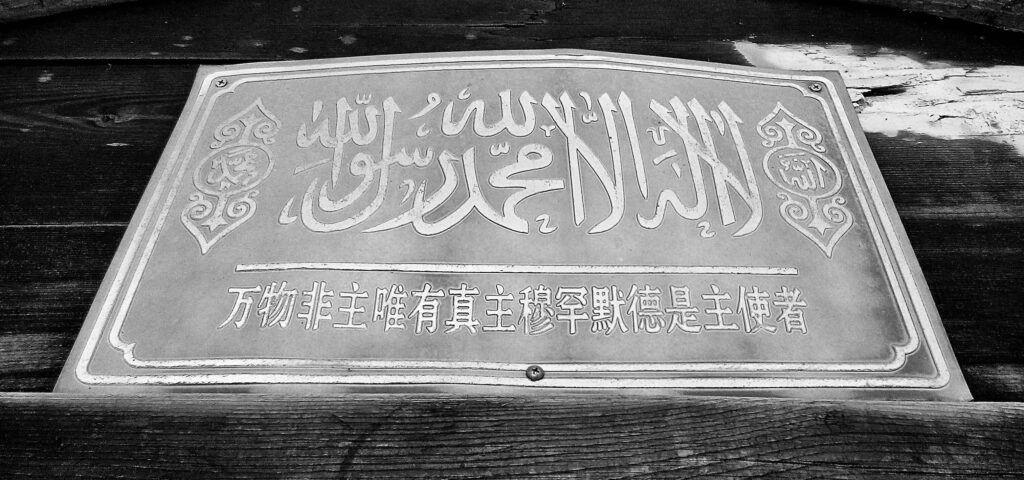 لا إله إلا الله محمد رسول الله
الله
محمد
万物非主唯有真主穆罕默德是主使者